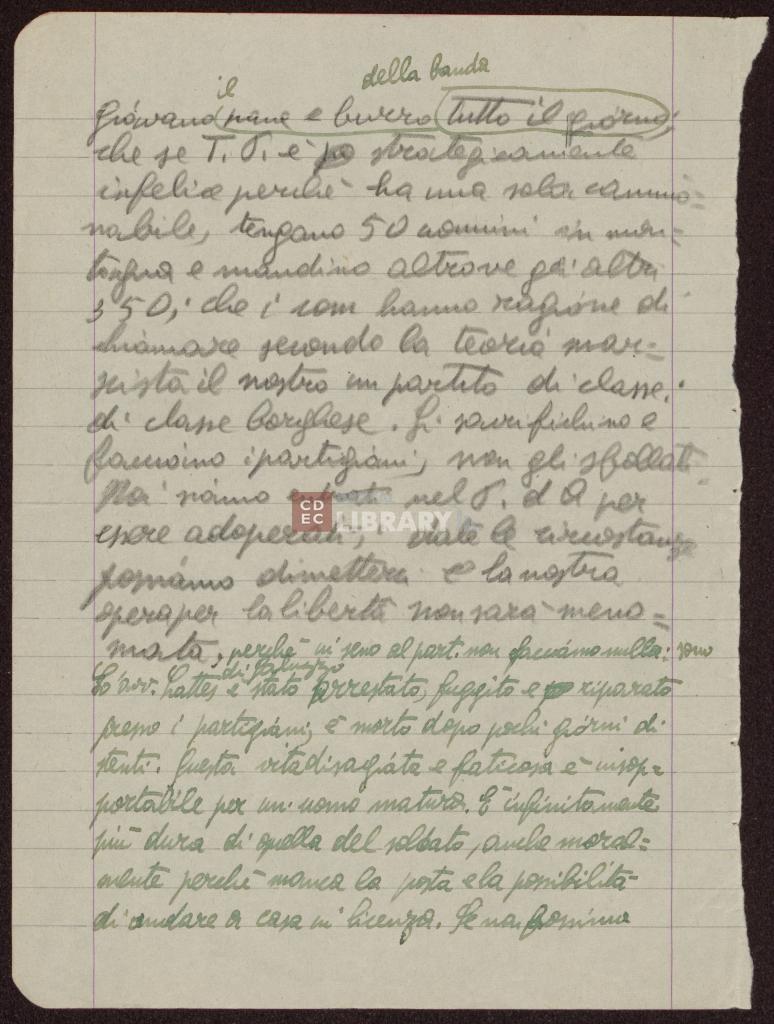 il della banda
giovano pane e burro tutto il giorno;
che se T. P. è strategicamente
infelice perchè ha una sola cammio=
nabile, tengano 50 uomini in mon=
tagna e mandino altrove gli altri
350; che i com hanno ragione di
chiamare secondo la teoria mar=
xista il nostro un partito di classe:
di classe borghese. Si sacrifichino e
facciano i partigiani, non gli sfollati.
Noi siamo entrati nel P. d A per
essere adoperati; date le circostanze
possiamo dimetterci e la nostra
opera per la libertà non sarà meno=
mata, perchè in seno al part. non facciamo nulla: sono
di Saluzzo
Lo avv. Lattes è stato arrestato, fuggito e riparato
presso i partigiani, è morto dopo pochi giorni di
stenti. Questa vita disagiata e faticosa è insop=
portabile per un uomo maturo. È infinitamente
più dura di quella del soldato, anche moral=
mente perchè manca la posta e la possibilità
di andare a casa in licenza. Se noi fossimo
CDEC
LIBRARY